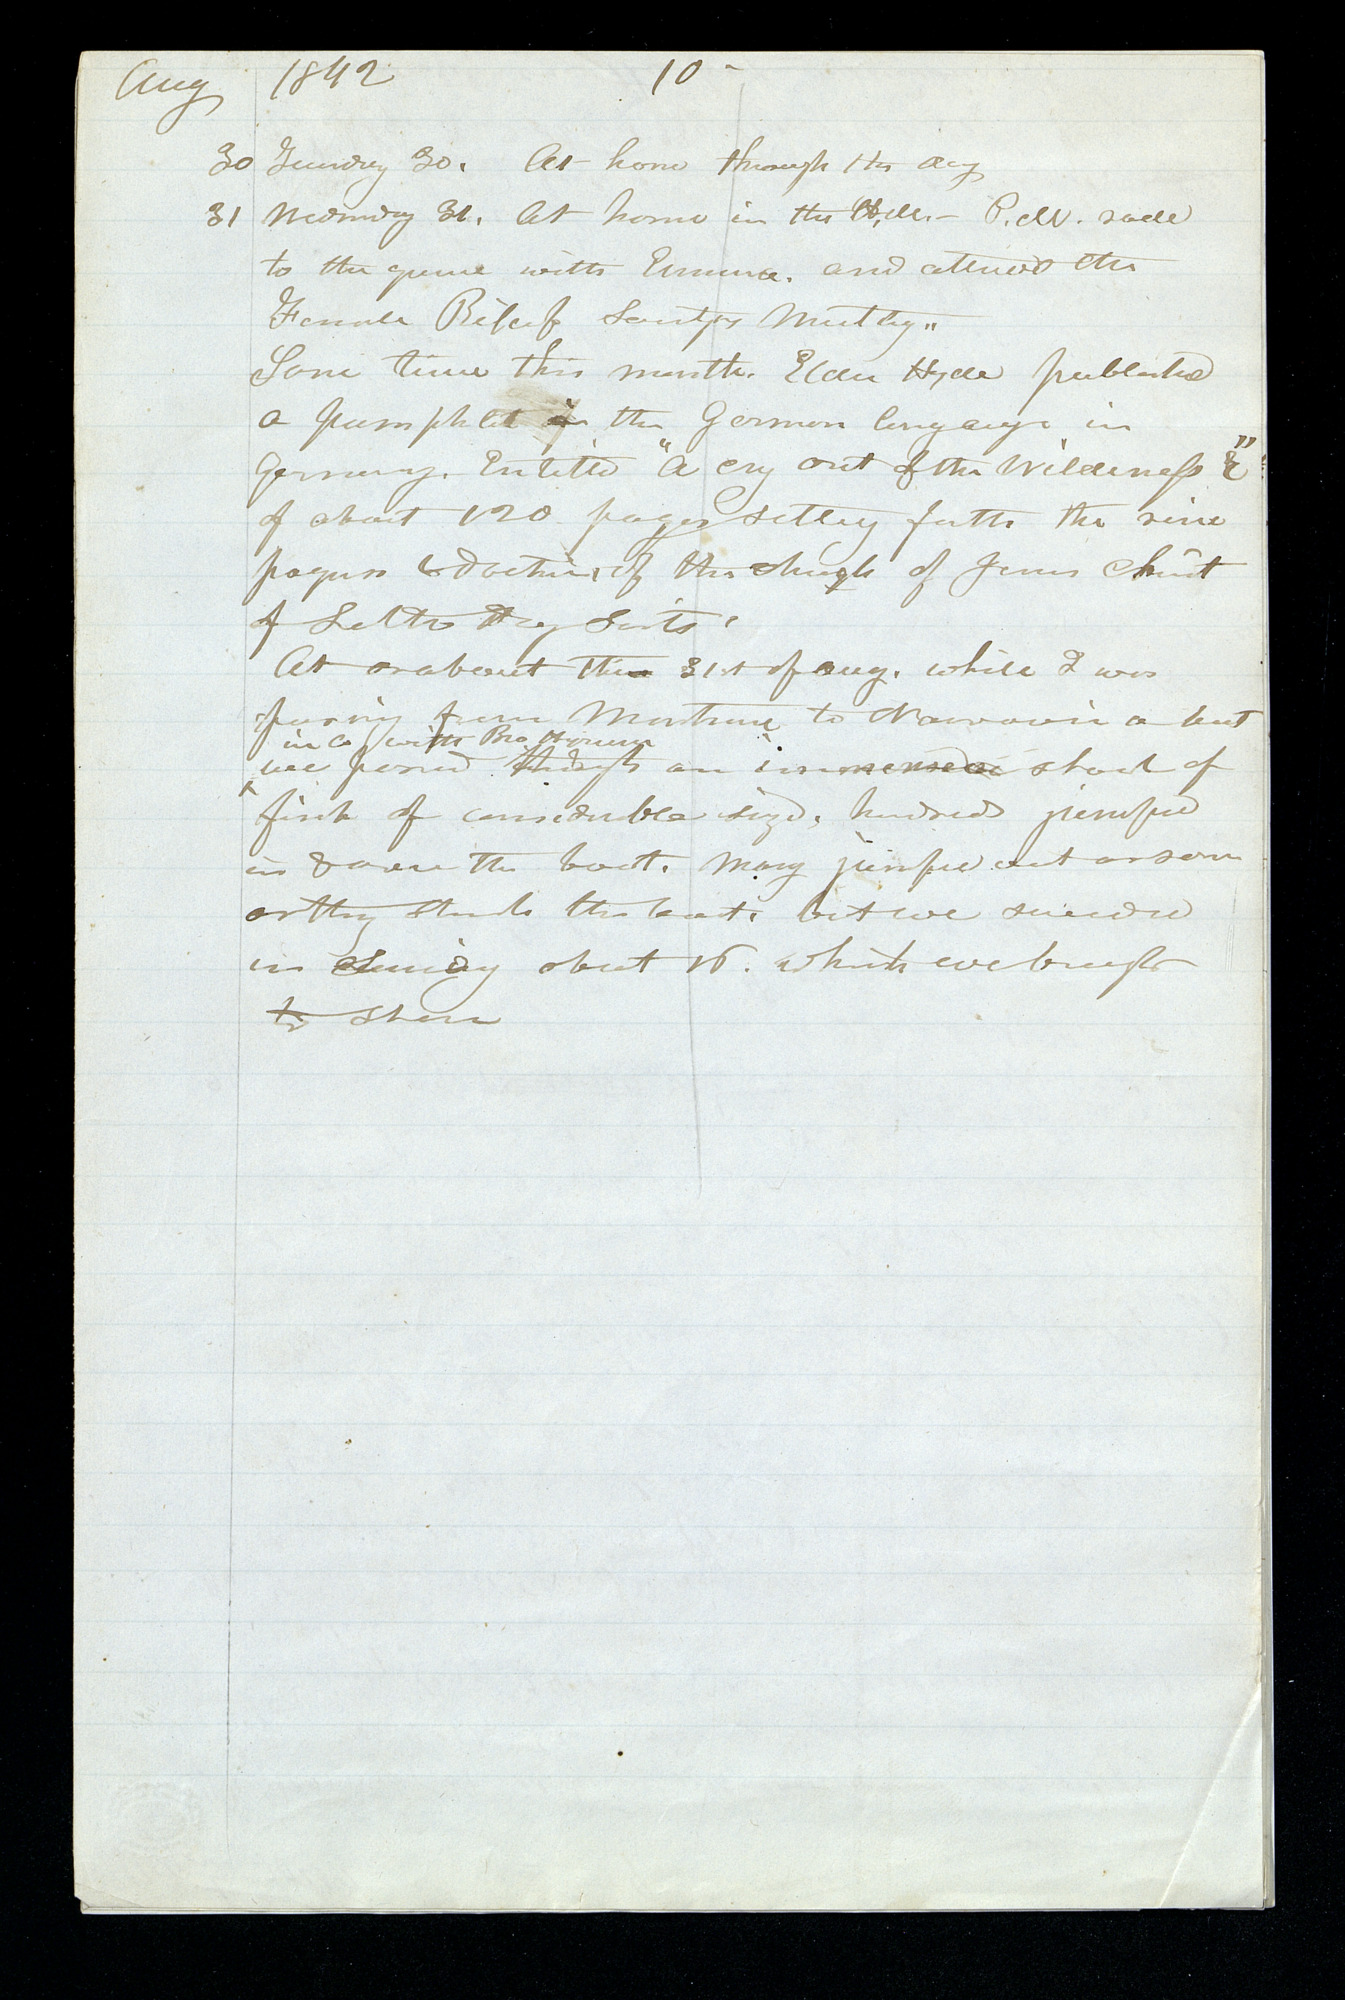 Aug 1842 10-
30 Tuesday 30. At home through the day
31 Wednesday 31. At home in the A.M.- P.M. rode
to the grove with Emma. and attend the
Female Relief Society Meeting"
Some time this month. Elder Hyde published
a pamphlet in the German language in
Germany. Entitled "A cry out of the Wilderness &"
of about 120 pages setting forth the rise
progress & doctrines of the church of Jesus Christ
of Latter Day Saints.
At or about the 31st of Aug. while I was
passing from Montrose to Nauvoo in a boat
in co with Bro Hyrum
we passed through an immense shoal of
fish of considerable size, hundreds jumped
in & over the boat. Many jumped out as soon
as they struck the boat, but we succeeded
in about 16. which we brought
to shore